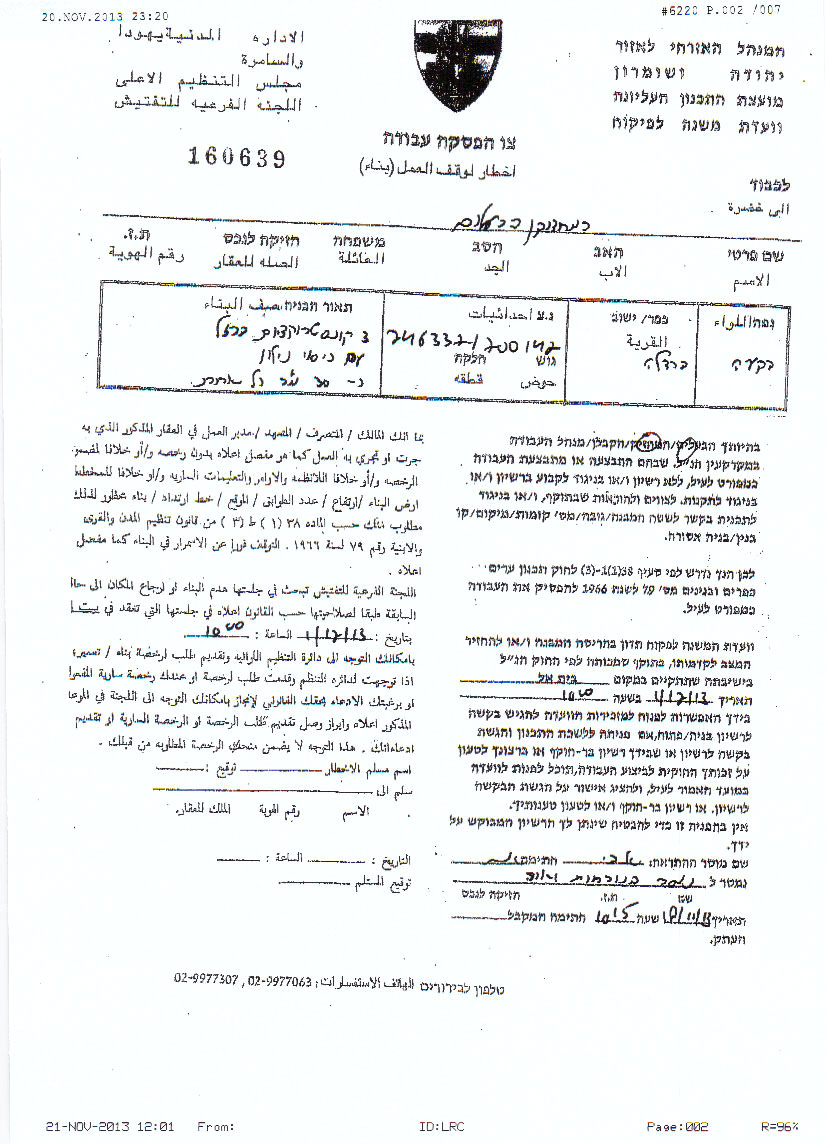 20.NOV.2013 23:20
#6220 P.002 /007
המנהל האזרחי לאזור
יהודה ושומרון
מועצת התכנון העליונה
וועדת משנה לפיקוח
الاداره المدنية يهودا
والسامرة
مجلس التنظيم الاعلى
اللجنة الفرعيه للتفتيش
160639
צו הפסקת עבודה
اخطار لوقف العمل (بناء)
לכבוד
الى حضرة
שם פרטי האב הסב משפחה חזיקה לנכס ת.ז.
الاسم الاب الجد العائلة الصله للعقار رقم الهوية
נפה/اللواء כפר/ ישוב נ.צ احداثيات תאור הבניה وصف البناء
القرية 246332/200142 3 קונסטרוקציות ברזל
בקעה ברדלה גוש חלקה עם כיסוי ניילון
حوض قطعه כ- 30 מ"ר כל אחת
בהיותך הבעלים/המחזיק/הקבלן/מנהל העבודה
במקרקעין הנ"ל, שבהם התבצעה או מתבצעת העבודה
כמפורט לעיל, ללא רשיון ו/או בניגוד לקבוע ברשיון ו/או
בניגוד לתקנות, לצווים ולהוראות שבתוקף, ו/או בניגוד
לתכנית בקשר לשטח המבנה/גובה/מס' קומות/מיקום/קו
בנין/בניה אסורה.
לכן הנך נדרש לפי סעיף 38(1)-(3) לחוק תכנון ערים
כפרים ובנינים מס' 79 לשנת 1966 להפסיק את העבודה
כמפורט לעיל.
וועדת המשנה לפקוח תדון בהריסת המבנה ו/או להחזיר
המצב לקדמותו, בתוקף סמכותה לפי החוק הנ"ל
בישיבתה שתתקיים במקום בית אל
תאריך 1/12/13 בשעה 10:00
בידך האפשרות לפנות למזכירות הוועדה להגיש בקשה
לרשיון בניה/פתוח, אם פניתה ללשכת התכנון והגשת
בקשה לרשיון או שבידך רשיון בר-תוקף או ברצונך לטעון
על זכותך החוקית לביצוע העבודה, תוכל לפנות לוועדה
במועד האמור לעיל, ולהציג אישור על הגשת הבקשה
לרשיון, או רשיון בר-תוקף ו/או לטעון טענותיך.
אין בהפניה זו כדי להבטיח שינתן לך הרשיון המבוקש על
ידך.
שם מוסר ההתראה: חתימה
נמסר ל
שם ת.ז. חזיקה לנכס
תאריך 18/11/13 שעה 1015 חתימת המקבל
העתק.
بما انك المالك / المتصرف / المتعهد / مدير العمل في العقار المذكور الذي به
جرت او تجري به العمل كما هو مفصل اعلاه بدون رخصه و/أو خلافا
الرخصه و/أو خلافا للانظمه والاوامر والتعليمات الساريه و/او خلافا للمخطط
ارض البناء /ارتفاع / عدد الطوابق / الموقع / خط ارتداد / بناء محظور لذلك
مطلوب منك حسب الماده ٣٨ ( ١ ) ط ( ٣ ) من قانون تنظيم المدن والقرى
والابنية رقم ٧٩ لسنة ١٩٦٦ . التوقف فورا عن الاستمرار في البناء كما مفصل
اعلاه .
اللجنة الفرعيه للتفتيش تبحث في جلستها هدم البناء او ارجاع المكان الى حالته
السابقة طبقا لصلاحيتها حسب القانون اعلاه في جلستها التي تعقد في بيت ايل
بتاريخ : 1/12/13 الساعة : 10:00
بامكانك التوجه الى دائرة التنظيم اللوائيه وتقديم طلب لرخصة بناء / تعمير؛
اذا توجهت لدائره التنظم وقدمت طلب لرخصة او عندك رخصة سارية المفعول
او برغبتك الادعاء بحقك القانوني لإنجاز بامكانك التوجه الى اللجنة في الموعد
المذكور اعلاه وابراز وصل تقديم طلب الرخصة او الرخصة السارية او تقديم
ادعاءاتك . هذا التوجه لا يضمن منحك الرخصة المطلوبه من قبلك .
اسم مسلم الاخطار توقيع :
سلم الى:
الاسم رقم الهوية المالك للعقار.
التاريخ : الساعة :
توقيع المستلم
טלפון לבירורים الهاتف الاستفسارات: 02-9977063 , 02-9977307
21-NOV-2013 12:01 From: ID:LRC Page:002 R=96%